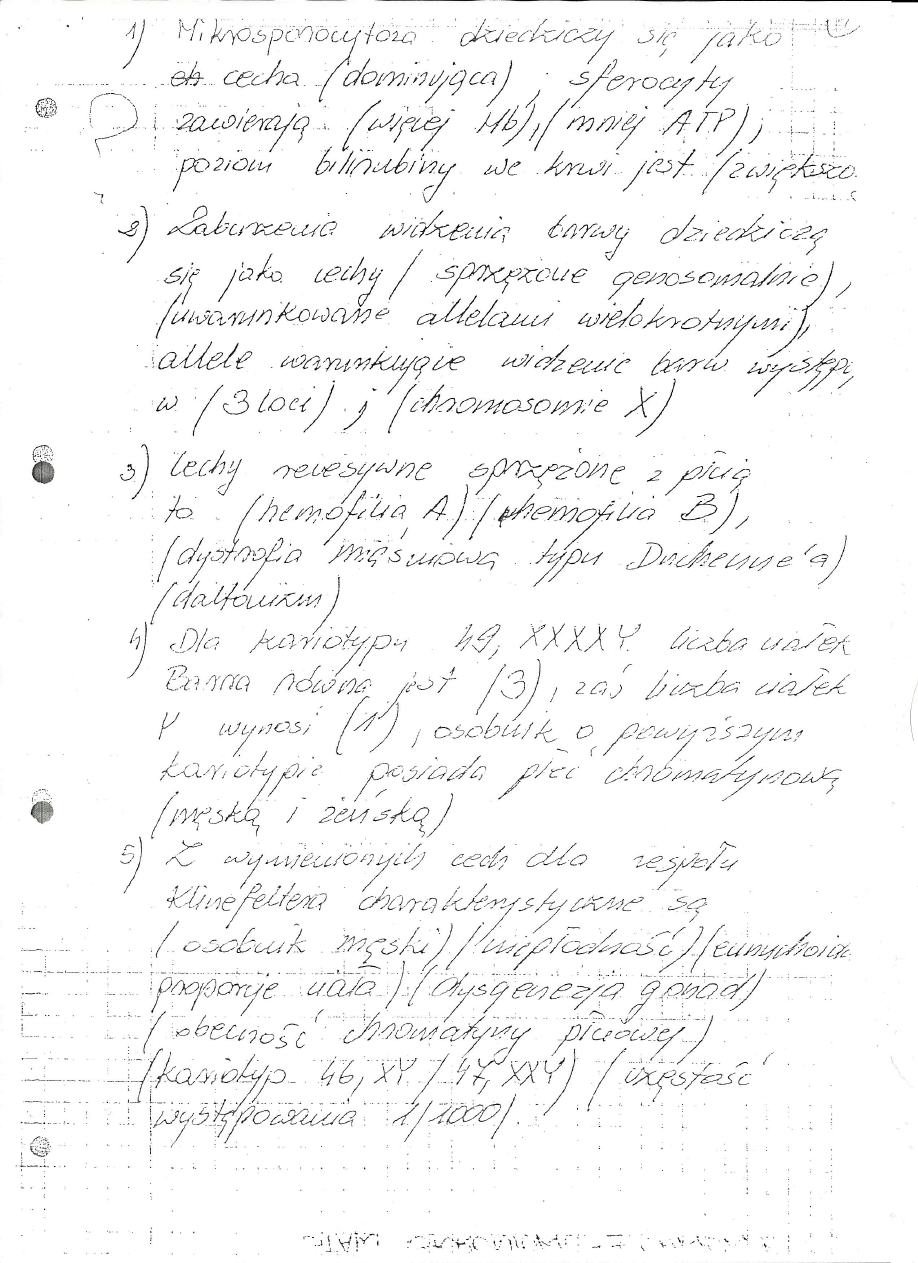 1) Mikrosporocytoza dziedziczy się jako
ch cecha (dominująca), sferocyty
? zawierają (więcej Hb), (mniej ATP),
poziom bilirubiny we krwi jest (zwiększo
2) Zaburzenia widzenia barwy dziedziczą
się jako cechy (sprzężone genosomalnie),
(uwarunkowane allelami wielokrotnymi),
allele warunkujące widzenie barw występ
w (3 loci) i (chromosomie X)
3) Cechy recesywne sprzężone z płcią
to (hemofilia A) (hemofilia B),
(dystrofia mięśniowa typu Duchenne'a)
(daltonizm)
4) Dla kariotypu 49, XXXXY liczba ciałek
Barra równa jest (3), zaś liczba ciałek
Y wynosi (1), osobnik o powyższym
kariotypie posiada płeć chromatynową
(męską i żeńską)
5) Z wymienionych cech dla zespołu
Klinefeltera charakterystyczne są
(osobnik męski) (niepłodność) (eunuchoid
proporcje ciała) (dysgenezja gonad)
(obecność chromatyny płciowej)
(kariotyp 46, XY / 47, XXY) (częstość
występowania 1/1000).